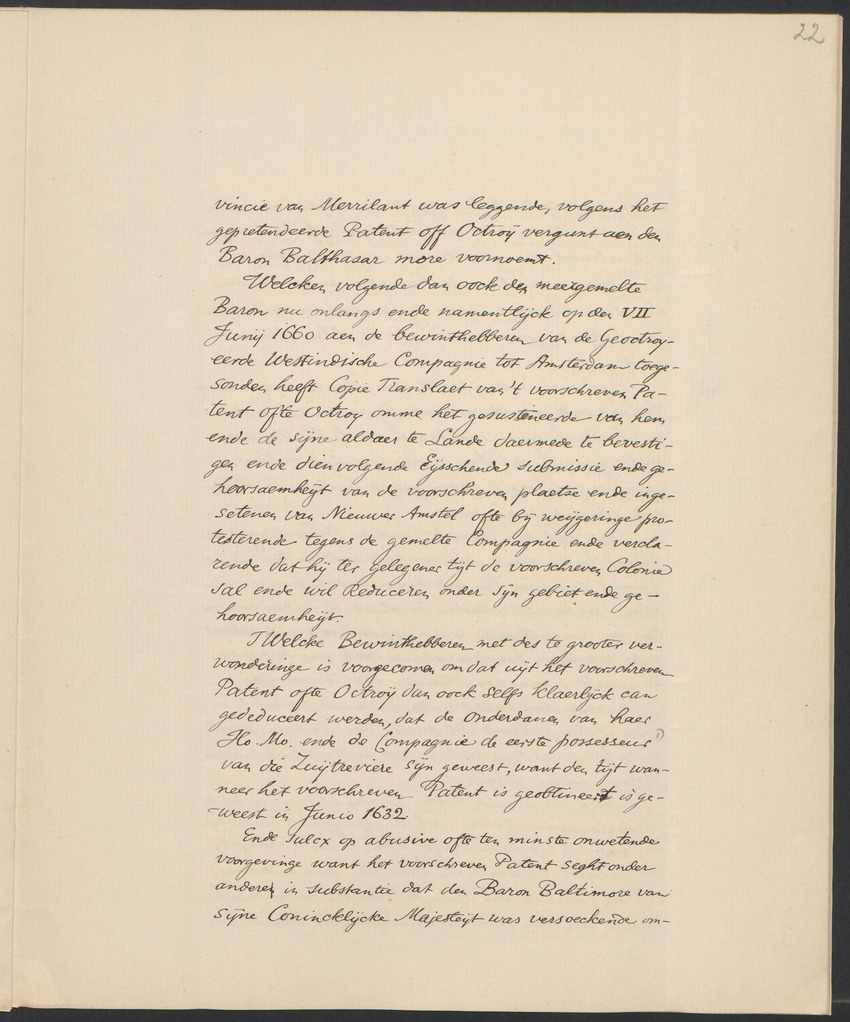 22
vincie van Merrilant was leggende, volgens het
gepretendeerde Patent off Octroÿ vergunt aen den
Baron Balthasar more voornoemt.
Welcken volgende dan oock den meergemelte
Baron nu onlangs ende namentlijck op den VII
Junij 1660 aen de bewinthebberen van de Geoctroy-
eerde Westindische Compagnie tot Amsterdam toege-
sonden heeft Copie Translaet van 't voorschreven Pa-
tent ofte Octroy omme het gesustineerde van hem
ende de sijne aldaer te Lande daermede te bevesti-
gen ende dien volgende Eijsschende submissie ende ge-
hoorsaemheijt van de voorschreven plaetse ende inge-
setenen van Nieuwer Amstel ofte bij weijgeringe pro-
testerende tegens de gemelte Compagnie ende vercla-
rende dat hij ter gelegener tijt de voorschreven Colonie
sal ende wil Reduceren onder sijn gebiet ende ge-
hoorsaemheijt.
TWelcke Bewinthebberen met des te grooter ver-
wonderinge is voorgecomen om dat uijt het voorschreven
Patent ofte Octroÿ dan oock selfs klaerlijck can
gededuceert werden, dat de onderdanen van haer
Ho. Mo. ende de Compagnie de eerste possesseur 1)
van die Zuijtreviere sijn geweest, want den tijt wan-
neer het voorschreven Patent is geobtineert is ge-
weest in Junio 1632.
Ende sulcx op abusive ofte ten minste onwetende
voorgevinge want het voorschreven Patent seght onder
anderen in substantie dat den Baron Baltimore van
sijne Conincklijcke Majesteijt was versoeckende om-